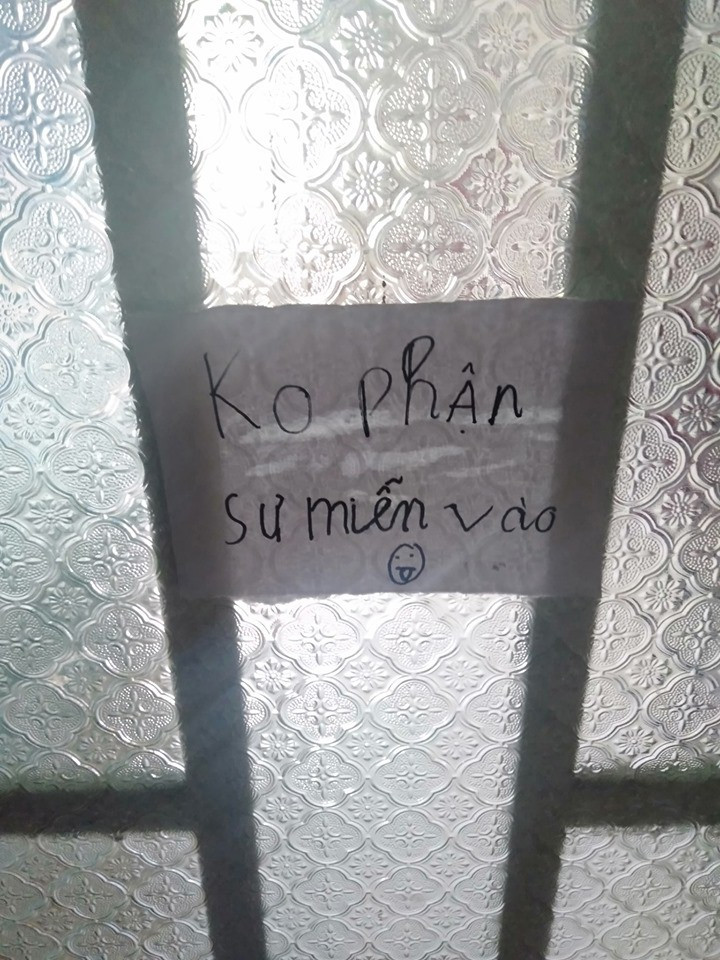 Ko phận
sư miễn vào